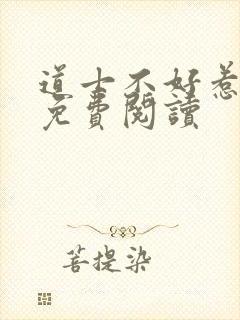 道士不好惹
免費閱讀
菩提染